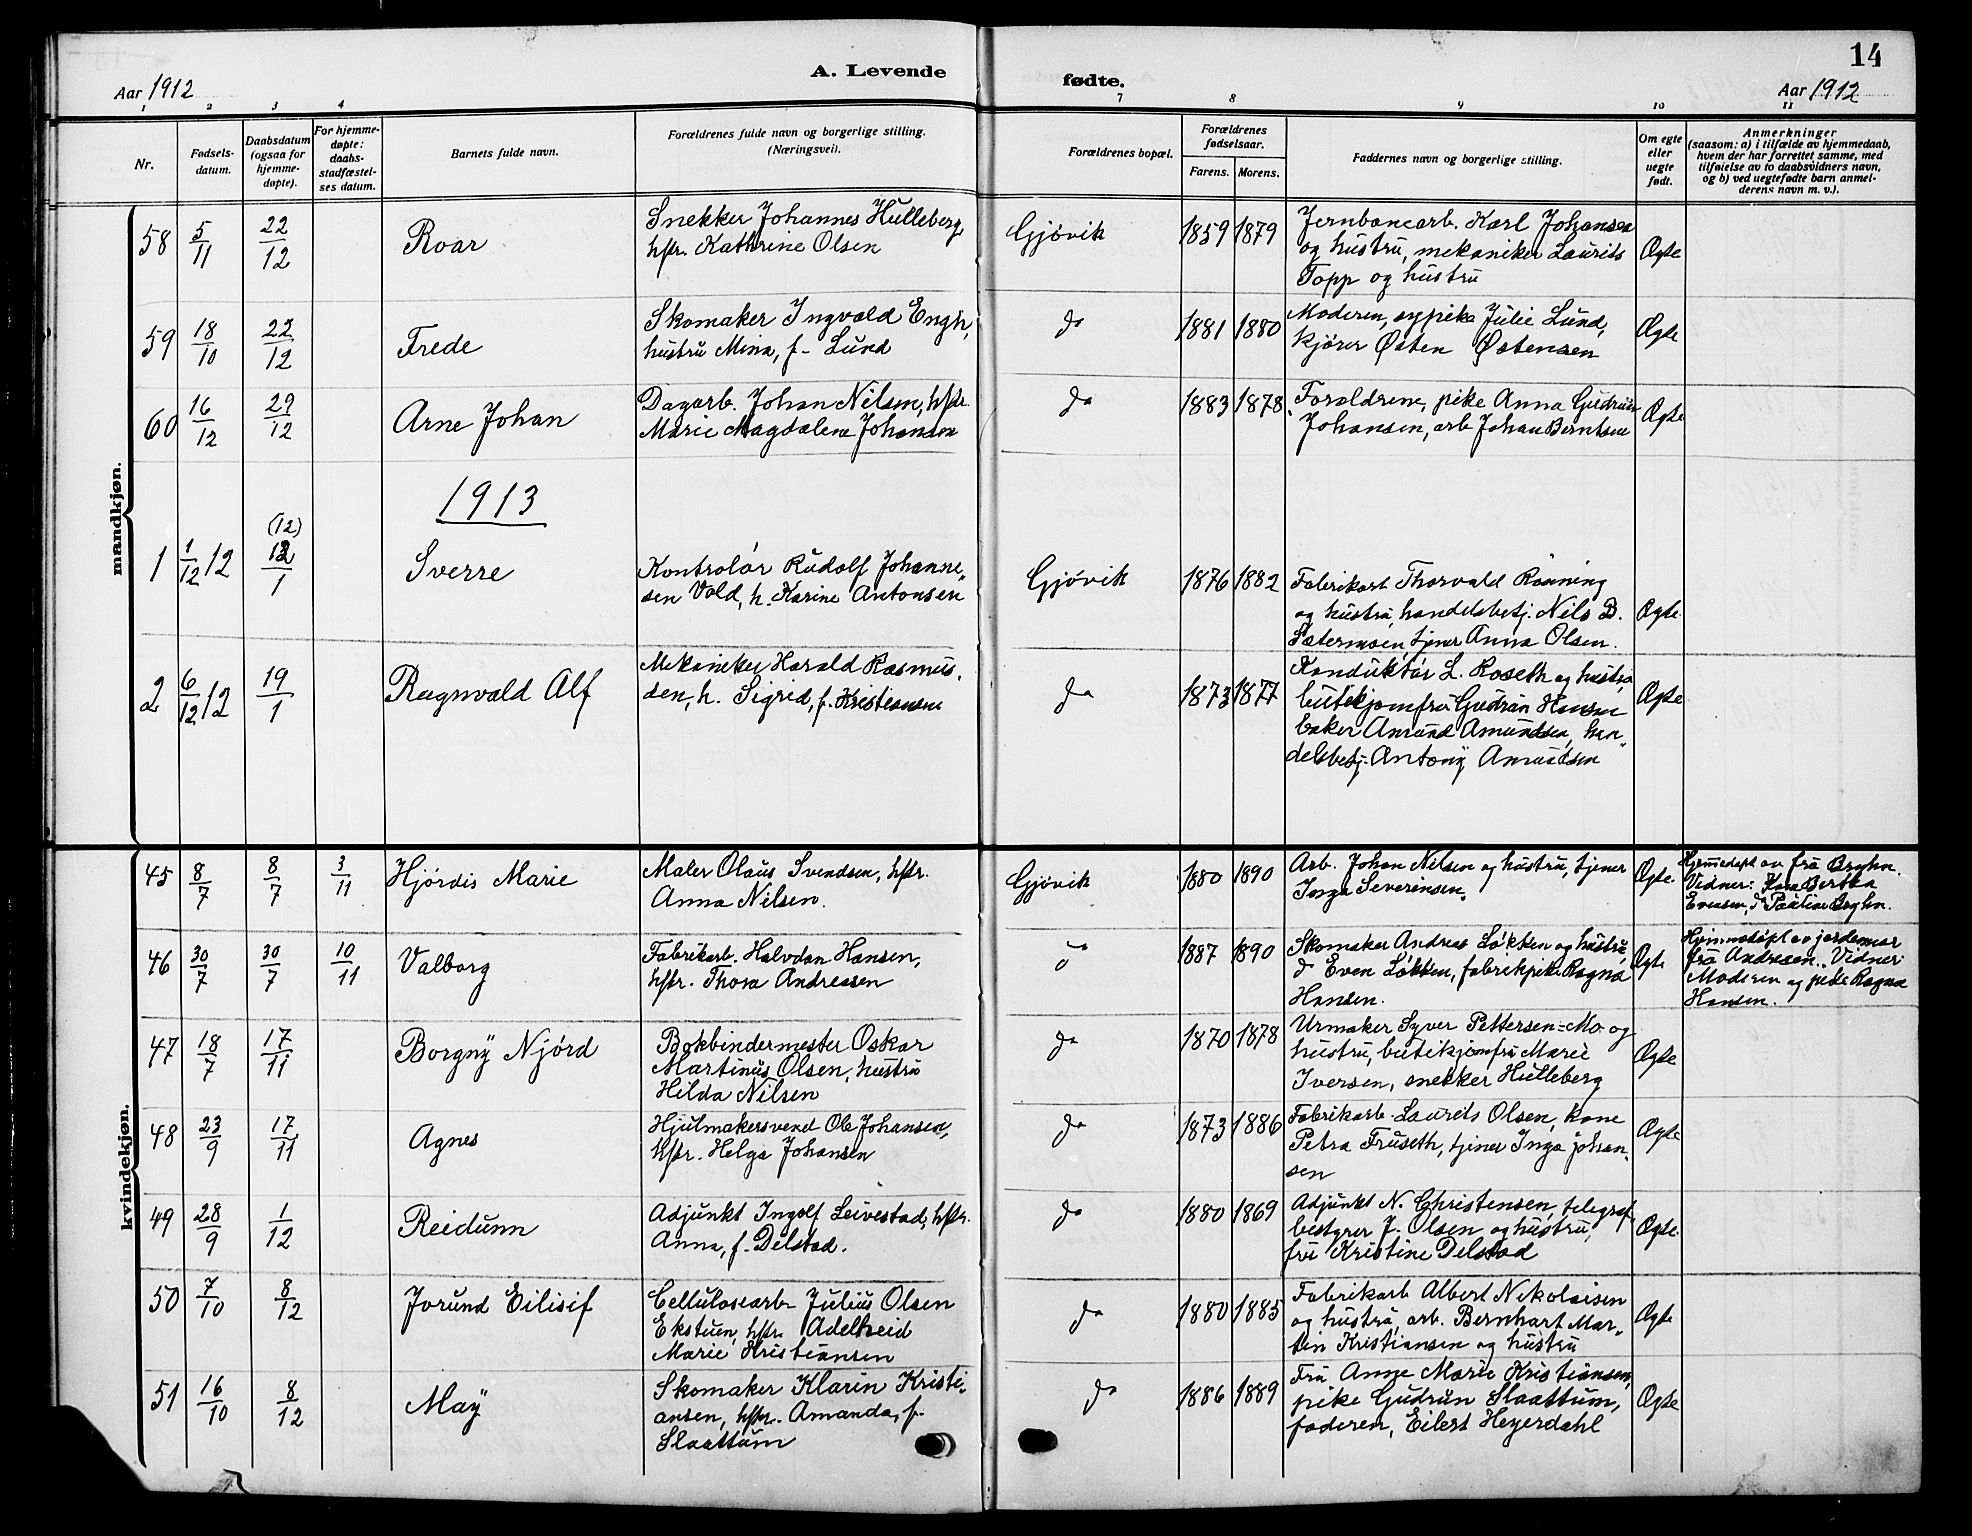 14
A. Levende
fødte.
Aar 1912
Aar 1912
1 2 3 4
7 8 9 10 11
Nr.
Fødsels-
datum.
Daabsdatum
(ogsaa for
hjemme-
døpte).
For hjemme-
døpte:
daabs-
stadfæstel-
ses datum.
Barnets fulde navn.
Forældrenes fulde navn og borgerlige stilling.
(Næringsvei).
Forældrenes bopæl.
Forældrenes
fødselsaar.
Farens. Morens.
Faddernes navn og borgerlige stilling.
Om egte
eller
uegte
født.
Anmerkninger
(saasom: a) i tilfælde av hjemmedaab,
hvem der har forrettet samme, med
tilføielse av to daabsvidners navn,
og b) ved uegtefødte barn anmel-
derens navn m. v.).
mandkjøn.
58 5/11 22/12 Roar
Snekker Johannes Hulleberg
hstr. Kathrine Olsen
Gjövik 1859 1879
Jernbanearb. Karl Johansen
og hustru, mekaniker Laurits
Topp og hustru
Ægte
59 18/10 22/12 Frede
Skomaker Ingvald Engh,
hustru Mina, f. Lund
do 1881 1880
Moderen, sypike Julie Lund,
kjörer Østen Østensen
Ægte
60 16/12 29/12 Arne Johan
Dagarb. Johan Nilsen, hstr.
Marie Magdalene Johansen
do 1883 1878
Forældrene, pike Anna Gudrun
Johansen, arb Johan Berntsen
Ægte
1913
1 1/12 12 (12) 12/1 Sverre
Kontrolör Rudolf Johanne-
sen Vold, h. Karine Antonsen
Gjövik 1876 1882
Fabrikarb Thorvald Rönning
og hustru, handelsbetj. Nils B.
Sætermoen, tjener Anna Olsen.
Ægte
2 6/12 12 19/1 Ragnvald Alf
Mekaniker Harald Rasmus-
sen, h. Sigrid, f. Kristiansen
do 1873 1877
Konduktör L. Roseth og hustru
butikjomfru Gudrun Hansen
baker Amund Amundsen, han-
delsbetj. Antony Amundsen
Ægte
kvindekjøn.
45 8/7 8/7 3/11 Hjördis Marie
Maler Olaus Svendsen, hstr.
Anna Nilsen.
Gjövik 1880 1890
Arb. Johan Nilsen og hustru, tjener
Inga Severinsen.
Ægte
Hjemmedøpt av fru Bryhn.
Vidner: Bertha
Evensen, Bryhn.
46 30/7 30/7 10/11 Valborg
Fabrikarb. Halvdan Hansen,
hstr. Thora Andreasen
do 1887 1890
Skomaker Andreas Lökken og hustru
Even Lökken, fabrikpike Ragna
Hansen.
Ægte
Hjemmedøpt av jordemor
fru Andresen. Vidner
Moderen og pike Ragna
Hansen.
47 18/7 17/11 Borgny Njörd
Bokbindermester Oskar
Martinius Olsen, hustru
Hilda Nilsen
do 1870 1878
Urmaker Syver Pettersen-Mo og
hustru, butikjomfru Marie
Iversen, snekker Hulleberg
Ægte
48 23/9 17/11 Agnes
Hjulmakersvend Ole Johansen,
hstr. Helga Johansen
do 1873 1886
Fabrikarb. Laurits Olsen, kone
Petra Fruseth, tjener Inga Johan-
sen
Ægte
49 28/9 1/12 Reidunn
Adjunkt Ingolf Leivestad, hstr.
Anna, f. Delstad.
do 1880 1869
Adjunkt N. Christensen, telegraf-
bestyrer J. Olsen og hustru,
fru Kristine Delstad
Ægte
50 7/10 8/12 Jorund Eilisif
Cellulosearb Julius Olsen
Ekstuen, hstr. Adelheid
Marie Kristiansen
do 1880 1885
Fabrikarb Albert Nikolaisen
og hustru, arb. Bernhart Mar-
tin Kristiansen og hustru
Ægte
51 16/10 8/12 May
Skomaker Klarin Kristi-
ansen, hstr. Amanda, f.
Slaattum
do 1886 1889
Fru Anne Marie Kristiansen,
pike Gudrun Slaattum,
faderen, Eilert Heyerdahl
Ægte